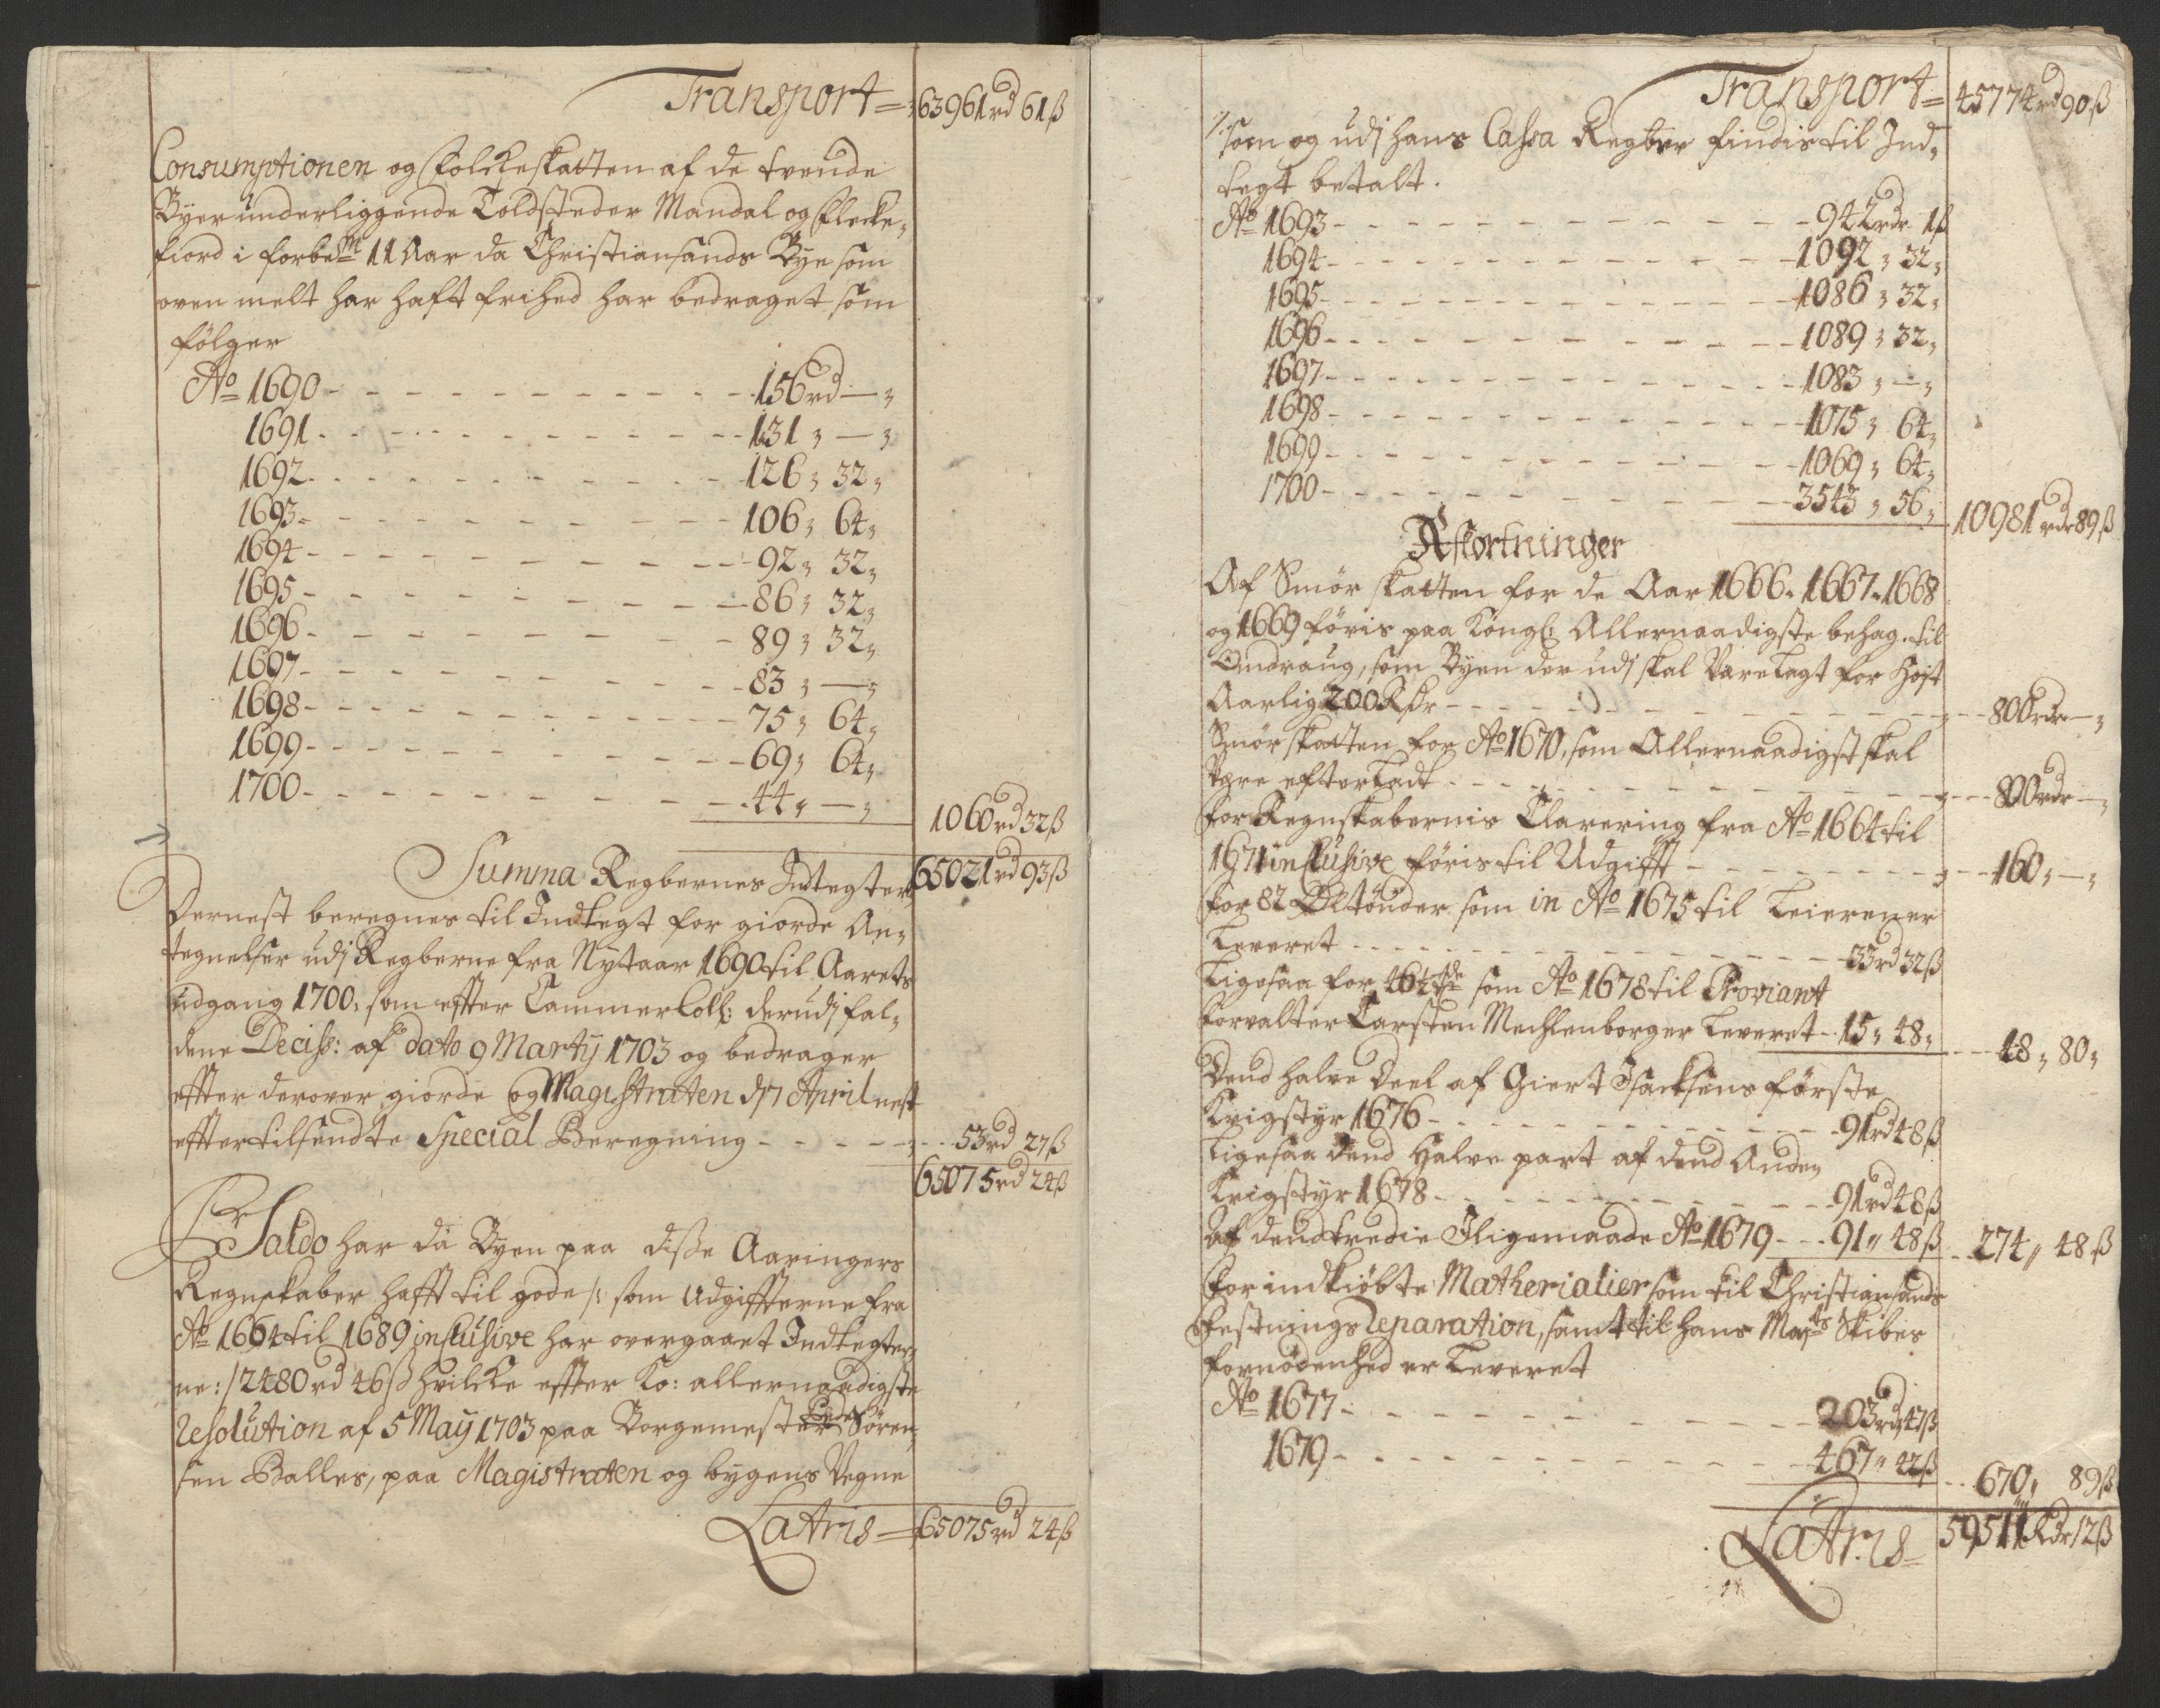 Transport = 63961rd 61ß
Consumptionen og Folckeskatten af de tvende
Byer underliggende Toldsteder Mandal og Flecke,
fiord i forbete 11 Aar da Christiansands Bye som
oven melt har haft frihed har bedraget som
følger
Ao 1690 - - - 156rd — „
1691 - - - 131 „ — „
1692 - - - 126 „ 32 „
1693 - - - 106 „ 64 „
1694 - - - 92 „ 32 „
1695 - - - 86 „ 32 „
1696 - - - 89 „ 32 „
1697 - - - 83 „ — „
1698 - - - 75 „ 64 „
1699 - - - 69 „ 64 „
1700 - - - 44 „ — „ 1060rd 32ß
Summa Regbernes Indtegter 65021rd 93ß
Dernest beregnes til Indtegt for giorde An,
tegnelser udj Regberne fra Nytaar 1690 til Aarets
udgang 1700, som effter Cammer Coll: derudj fal,
dene Deciss: af dato 9 Martij 1703 og bedrager
effter derover giorde og Magistraten d 7 April nest
effter tilsendte Special Beregning - - - 53rd 27ß
65075rd 24ß
Pr Saldo har da Byen paa disse Aaringers
Regnskaber hafft til gode /: som Udgiffterne fra
Ao 1664 til 1689 inclusive har overgaaet Indtegter,
ne :/ 2480rd 46ß hvilcke effter Ko: allernaadigste
Resolution af 5 Maij 1703 paa Borgemester Peder Søren,
sen Balles, paa Magistraten og byens Vegne
Latris = 65075rd 24ß
Transport = 45774rd 90ß
/: som og udj hans Cassa Regber findis til Ind,
tegt betalt.
Ao 1693 - - - 942rdr 1ß
1694 - - - 1092 „ 32 „
1695 - - - 1086 „ 32 „
1696 - - - 1089 „ 32 „
1697 - - - 1083 „ — „
1698 - - - 1075 „ 64 „
1699 - - - 1069 „ 64 „
1700 - - - 3543 „ 56 „ 10981rdr 89ß
Afkortninger
Af Smør skatten for de Aar 1666. 1667. 1668
og 1669 føris paa Kongl: Allernaadigste behag. til
Omdraug, som Byen der udj skal Være lagt for høyt
Aarlig 200 Rdr - - - 800rdr — „
Smør skatten for Ao 1670, som Allernaadigst skal
Være efterladt - - - 800rdr — „
for Regnskabernis Clarering fra Ao 1664 til
1671 inclusive føris til Udgifft - - - 160 „ — „
for 82 Øltønder som in Ao 1675 til Leierener
Leveret - - - 33rd 32ß
Ligesaa for 46 tde som Ao 1678 til Proviant
forvalter Carsten Mechlenborger Leveret - 15 „ 48 „ - - 48 „ 80 „
Dend halve Deel af Giert Isacksens første
Krigstyr 1676 - - - 91rd 48ß
Ligesaa dend Halve part af dend Anden
Krigstyr 1678 - - - 91rd 48ß
Af dend tredie Iligemaade Ao 1679 - - 91 „ 48ß - 274 „ 48ß
for indkiøbte Matherialier som til Christiansands
Festnings Reparation, samt til hans Mayts Skibes
fornødenhed er Leveret
Ao 1677 - - - 203rdr 47ß
1679 - - - 467 „ 42ß - - 670 „ 89ß
Latris = 59511Rdr 12ß